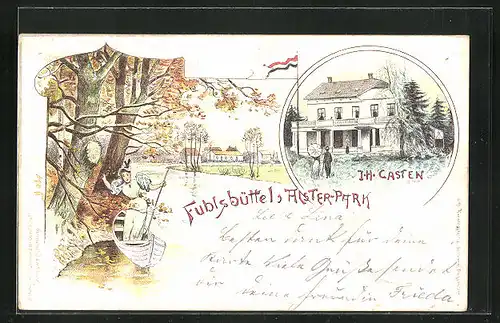 J·H· CASTEN
Fuhlsbüttel, ALSTER-PARK
Liebe Lina
Besten dank für deine
Karte Viele Grüße sendet
dir deine freundin Frieda